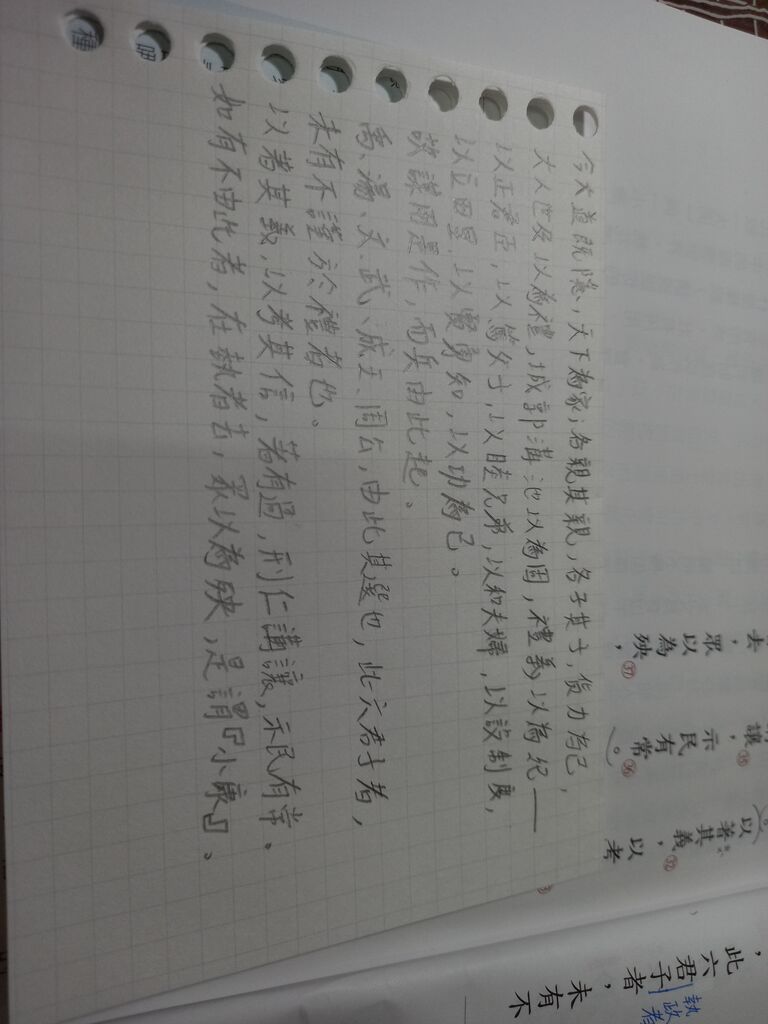 今大道既隱，天下為家；各親其親，各子其子，貨力為己，
大人世及以為禮，城郭溝池以為固，禮義以為紀——
以正君臣，以篤父子，以睦兄弟，以和夫婦，以設制度，
以立田里，以賢勇知，以功為己。
故謀用是作，而兵由此起。
禹、湯、文、武、成王、周公，由此其選也，此六君子者，
未有不謹於禮者也。
以著其義，以考其信，著有過，刑仁講讓，示民有常。
如有不由此者，在執者去，眾以為殃，是謂『小康』。
此六君子者，未有不
執政者
。以著其義，㉜以考
讓，㉟示民有常。㊱
去，眾以為殃，㊲